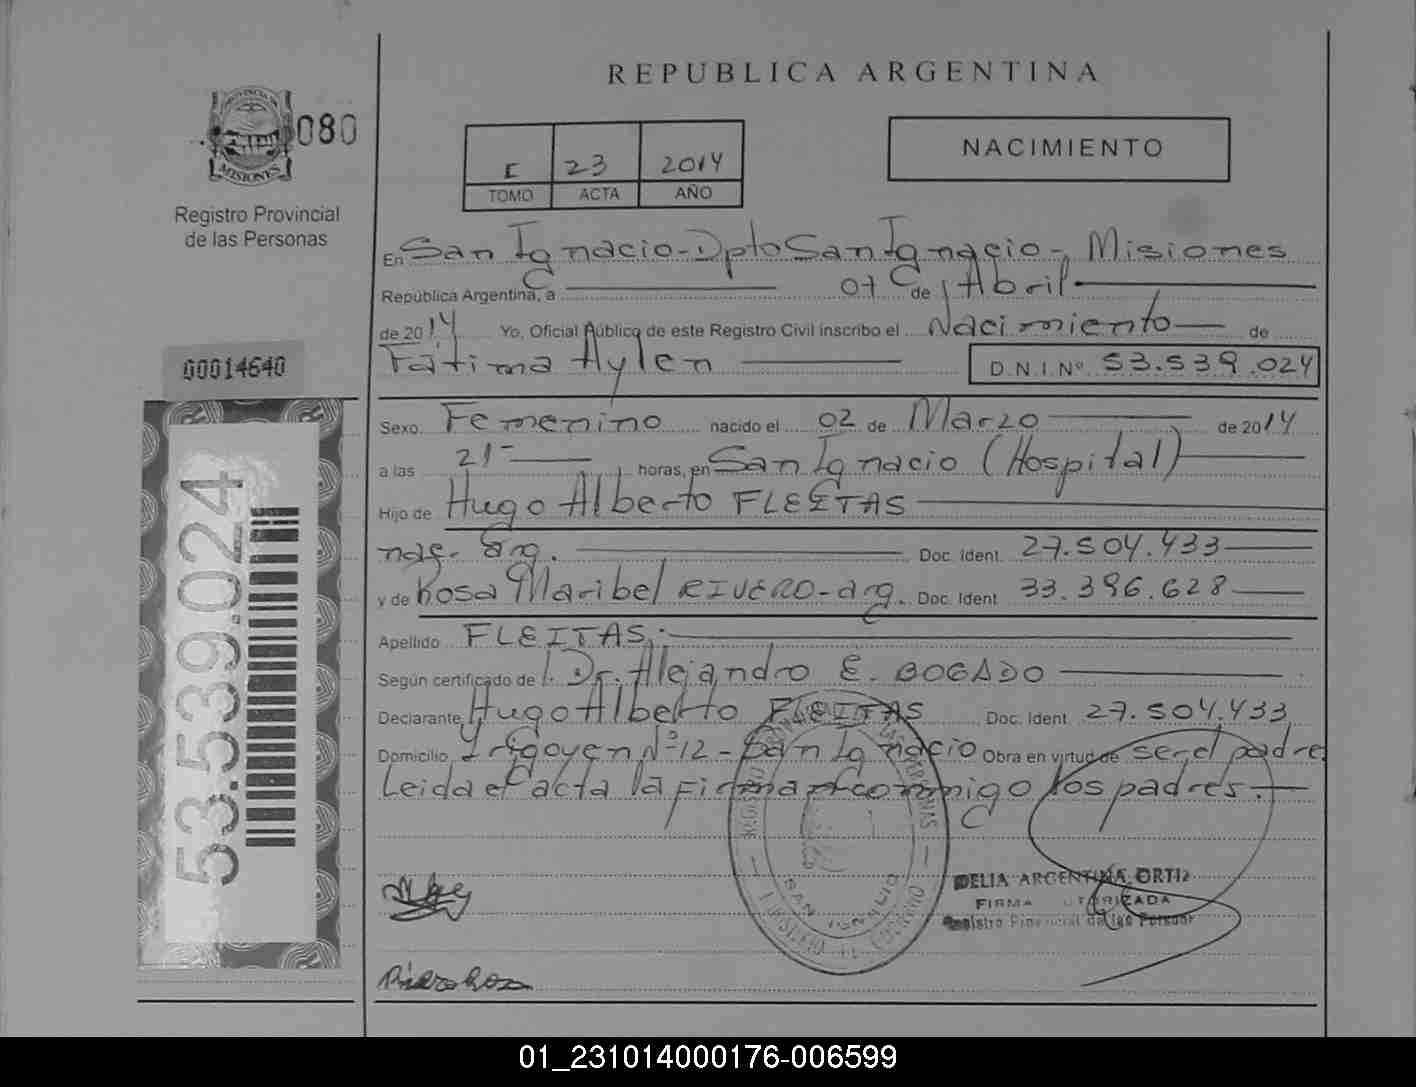 REPUBLICA ARGENTINA
PROVINCIA DE
MISIONES
080
Registro Provincial
de las Personas
I 23 2014
TOMO ACTA AÑO
NACIMIENTO
En San Ignacio - Dpto San Ignacio -, Misiones
República Argentina, a 07 de Abril
de 2014 Yo, Oficial Público de este Registro Civil inscribo el Nacimiento de
Fátima Aylen D.N.I Nº 53.539.024
00014640
53.539.024
Sexo Femenino nacido el 02 de Marzo de 2014
a las 21- horas, en San Ignacio (Hospital)
Hijo de Hugo Alberto FLEITAS
nac. arg. Doc. Ident. 27.504.433
y de Rosa Maribel RIVERO - arg. Doc. Ident 33.396.628
Apellido FLEITAS.-
Según certificado de Dr. Alejandro E. BOGADO
Declarante Hugo Alberto FLEITAS Doc. Ident 27.504.433
Domicilio Irigoyen Nº 12 - San Ignacio Obra en virtud de ser el padre
Leida el acta la firman conmigo los padres.-
SAN IGNACIO
DELIA ARGENTINA ORTIZ
FIRMA AUTORIZADA
Registro Provincial de las Personas
01_231014000176-006599